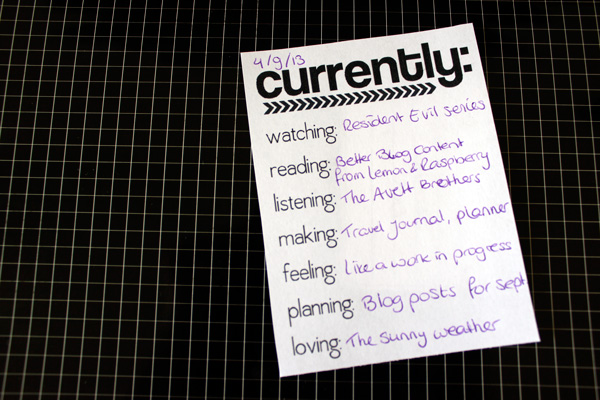 4/9/13
currently:
watching: Resident Evil series
reading: Better Blog Content
from Lemon & Raspberry
listening: The Avett Brothers
making: Travel journal, planner
feeling: Like a work in progress
planning: Blog posts for sept
loving: The sunny weather